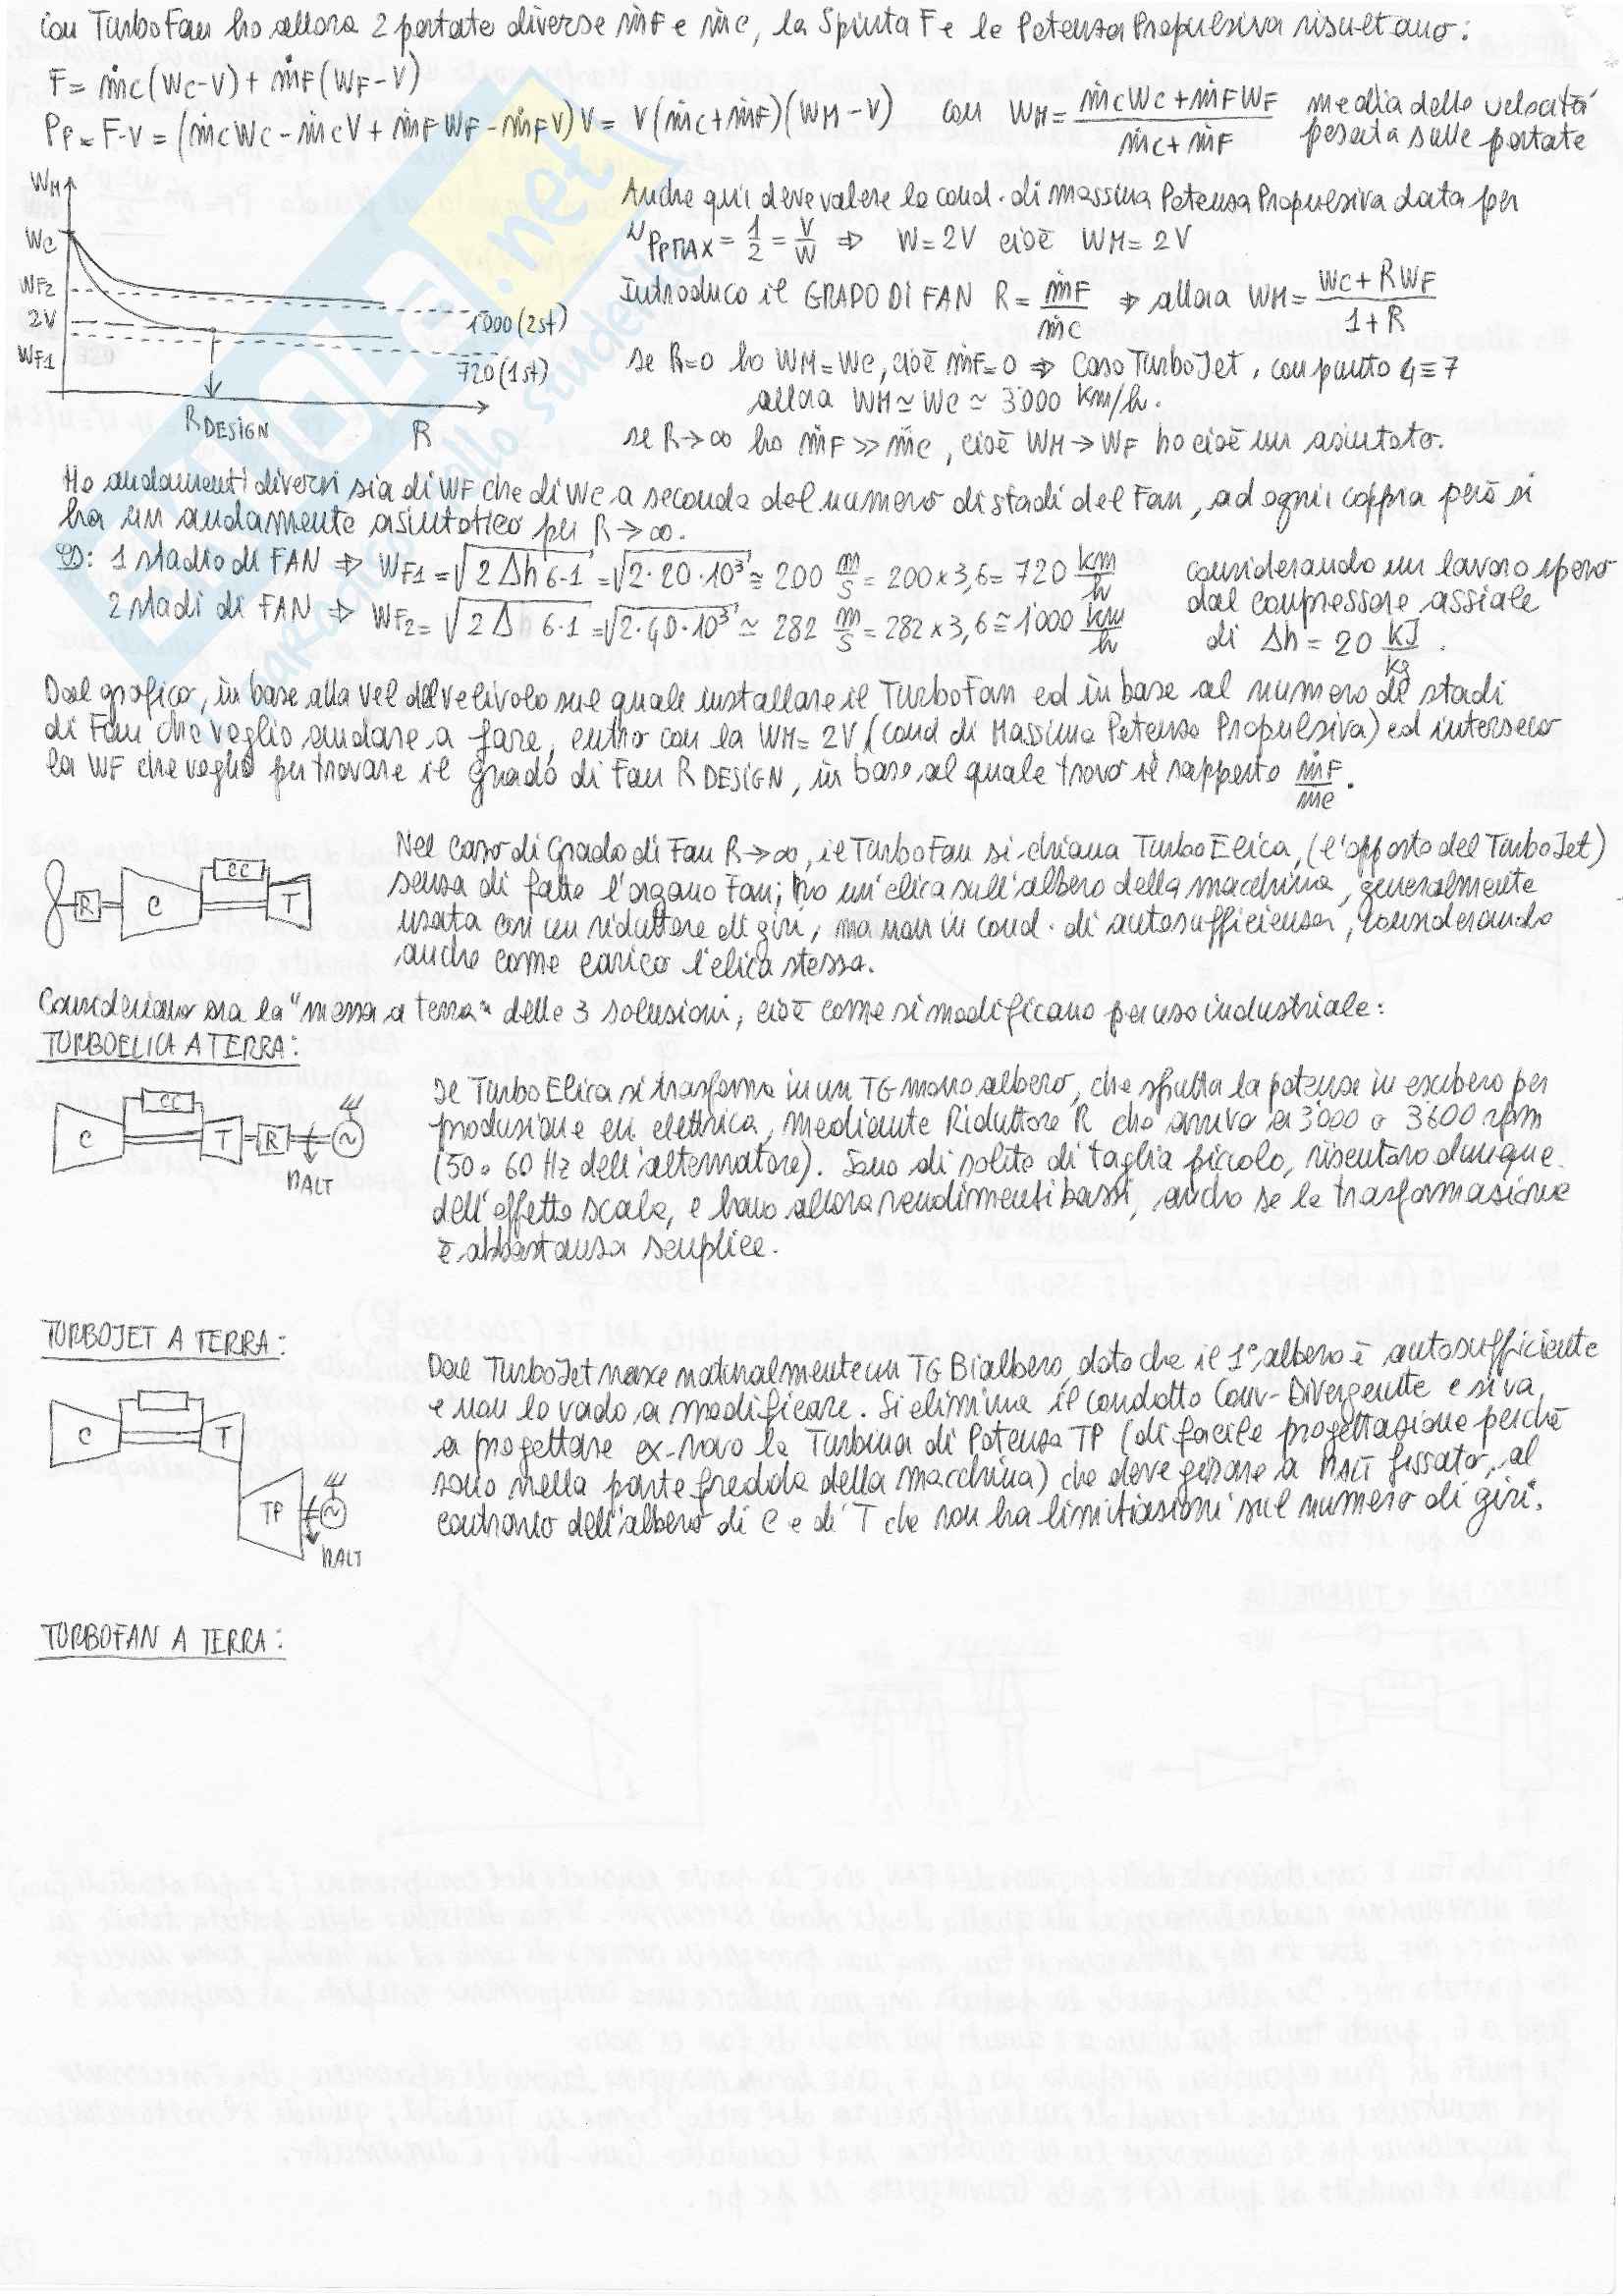 con TurboFan ho allora 2 portate diverse ṁF e ṁc, la Spinta F e la Potenza Propulsiva risultano:
F = ṁc(Wc-V) + ṁF(WF-V)
Pp = F·V = (ṁcWc - ṁcV + ṁFWF - ṁFV)V = V(ṁc+ṁF)(WM-V) con WM = (ṁcWc + ṁFWF)/(ṁc+ṁF) media delle velocità pesata sulle portate
WM
Wc
WF2
2V
WF1
1000 (2st)
720 (1st)
R DESIGN
R
Anche qui deve valere la cond. di massima Potenza Propulsiva data per
ηPpMAX = 1/2 = V/W ⇒ W = 2V cioè WM = 2V
Introduco il GRADO DI FAN R = ṁF/ṁc ⇒ allora WM = (Wc + RWF)/(1+R)
se R=0 ho WM=Wc, cioè ṁF=0 ⇒ Caso TurboJet, con punto 4≡7
allora WM ≃ Wc ≃ 3000 Km/h.
se R→∞ ho ṁF >> ṁc, cioè WM→WF ho cioè un asintoto.
Ho andamenti diversi sia di WF che di Wc a seconda del numero di stadi del Fan, ad ogni coppia però si
ha un andamento asintotico per R→∞.
ES: 1 stadio di FAN ⇒ WF1 = √(2Δh6-1) = √(2·20·10³) ≅ 200 m/s = 200×3,6 = 720 km/h
2 stadi di FAN ⇒ WF2 = √(2Δ 6-1) = √(2·40·10³) ≃ 282 m/s = 282×3,6 ≅ 1000 km/h
considerando un lavoro speso
dal compressore assiale
di Δh = 20 kJ/kg.
Dal grafico, in base alla vel del velivolo sul quale installare il TurboFan ed in base al numero di stadi
di Fan che voglio andare a fare, entro con la WM=2V (cond di Massima Potenza Propulsiva) ed interseco
la WF che voglio per trovare il grado di Fan R DESIGN, in base al quale trovo il rapporto ṁF/ṁc.
R
C
CC
T
Nel caso di Grado di Fan R→∞, il TurboFan si chiama Turbo Elica, (l'opposto del TurboJet)
senza di fatto l'organo Fan; ho un'elica sull'albero della macchina, generalmente
usata con un riduttore di giri, ma non in cond. di autosufficienza, considerando
anche come carico l'elica stessa.
Consideriamo ora la "messa a terra" delle 3 soluzioni, cioè come si modificano per uso industriale:
TURBOELICA A TERRA:
C
CC
T
R
nALT
Il TurboElica si trasforma in un TG mono albero, che sfrutta la potenza in esubero per
produzione en. elettrica, mediante Riduttore R che arriva a 3000 o 3600 rpm
(50 o 60 Hz dell'alternatore). Sono di solito di taglia piccola, risentono dunque
dell'effetto scala, e hanno allora rendimenti bassi, anche se la trasformazione
è abbastanza semplice.
TURBOJET A TERRA:
C
T
TP
nALT
Dal TurboJet nasce naturalmente un TG Bialbero, dato che il 1° albero è autosufficiente
e non lo vado a modificare. Si elimina il condotto Conv-Divergente e si va
a progettare ex-novo la Turbina di Potenza TP (di facile progettazione perchè
sono nella parte fredda della macchina) che deve girare a nALT fissato, al
contrario dell'albero di C e di T che non ha limitazioni sul numero di giri.
TURBOFAN A TERRA: